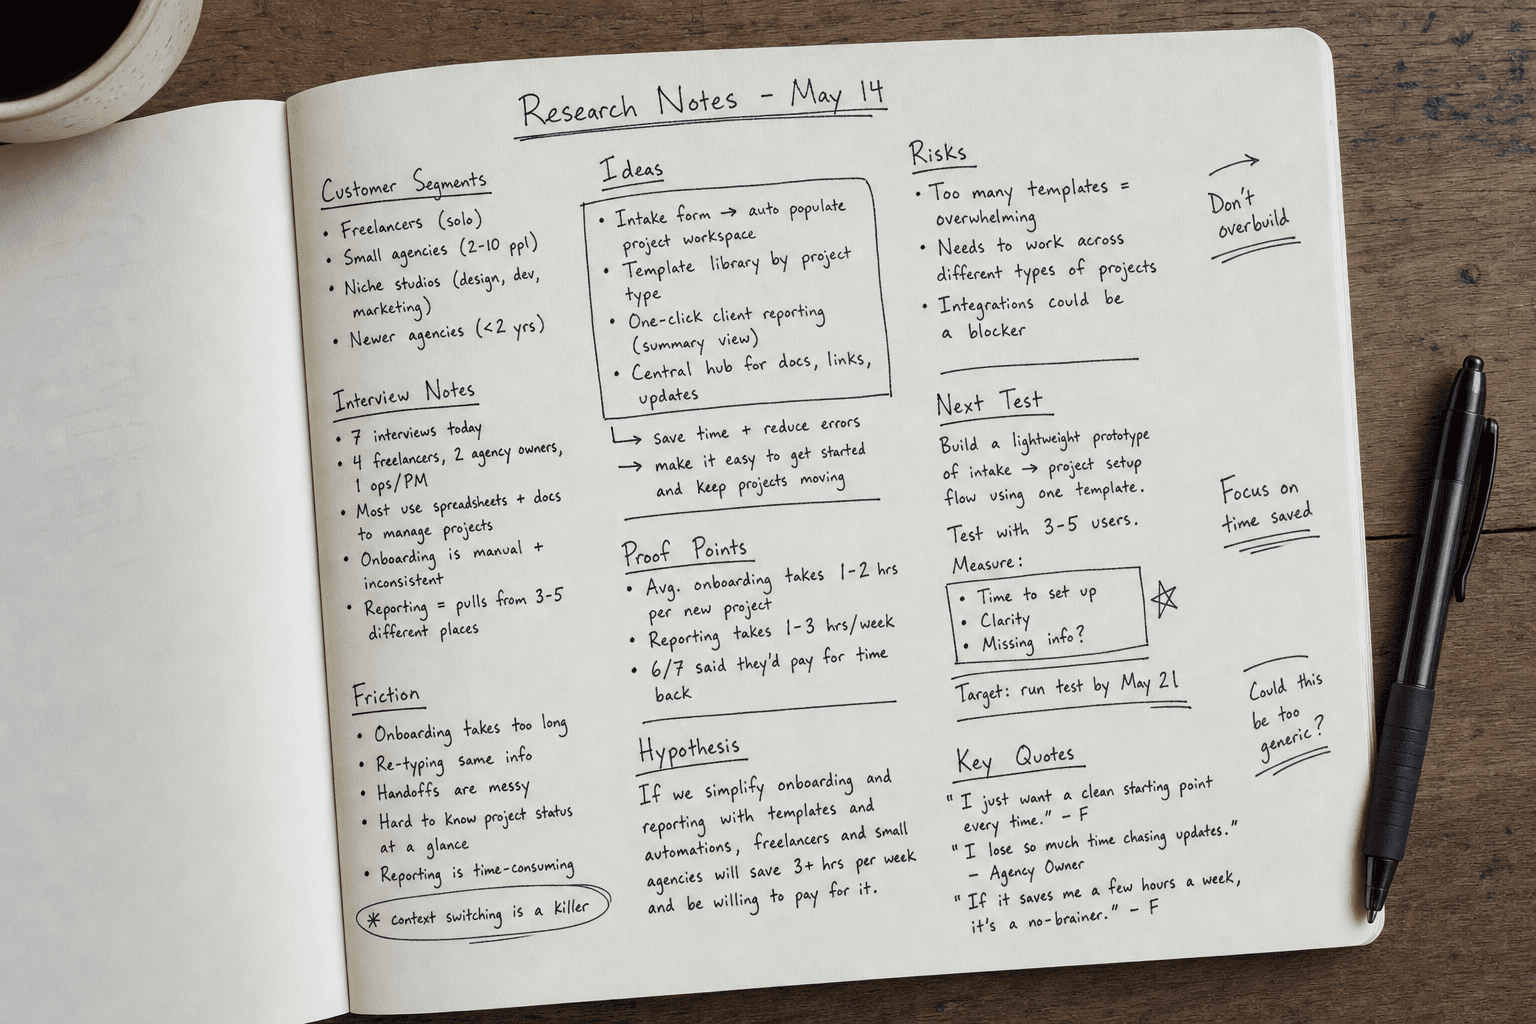 Research Notes - May 14
Customer Segments
• Freelancers (solo)
• Small agencies (2-10 ppl)
• Niche studios (design, dev,
marketing)
• Newer agencies (<2 yrs)
Interview Notes
• 7 interviews today
• 4 freelancers, 2 agency owners,
1 ops/PM
• Most use spreadsheets + docs
to manage projects
• Onboarding is manual +
inconsistent
• Reporting = pulls from 3-5
different places
Friction
• Onboarding takes too long
• Re-typing same info
• Handoffs are messy
• Hard to know project status
at a glance
• Reporting is time-consuming
* context switching is a killer
Ideas
• Intake form → auto populate
project workspace
• Template library by project
type
• One-click client reporting
(summary view)
• Central hub for docs, links,
updates
↳ save time + reduce errors
→ make it easy to get started
and keep projects moving
Proof Points
• Avg. onboarding takes 1-2 hrs
per new project
• Reporting takes 1-3 hrs/week
• 6/7 said they'd pay for time
back
Hypothesis
If we simplify onboarding and
reporting with templates and
automations, freelancers and small
agencies will save 3+ hrs per week
and be willing to pay for it.
Risks
• Too many templates =
overwhelming
• Needs to work across
different types of projects
• Integrations could be
a blocker
Next Test
Build a lightweight prototype
of intake → project setup
flow using one template.
Test with 3-5 users.
Measure:
• Time to set up
• Clarity
• Missing info?
☆
Target: run test by May 21
Key Quotes
"I just want a clean starting point
every time." - F
"I lose so much time chasing updates."
- Agency Owner
"If it saves me a few hours a week,
it's a no-brainer." - F
→
Don't
overbuild
Focus on
time saved
Could this
be too
generic?